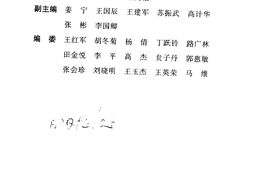 副主编 姜宁 王国辰 王建军 苏振武 高计华
张彬 李国卿
编委 王红军 胡冬菊 杨倩 丁跃铃 路广林
田金悦 李平 高杰 贠子丹 郭惠敏
张会珍 刘晓明 王玉杰 王英荣 马维